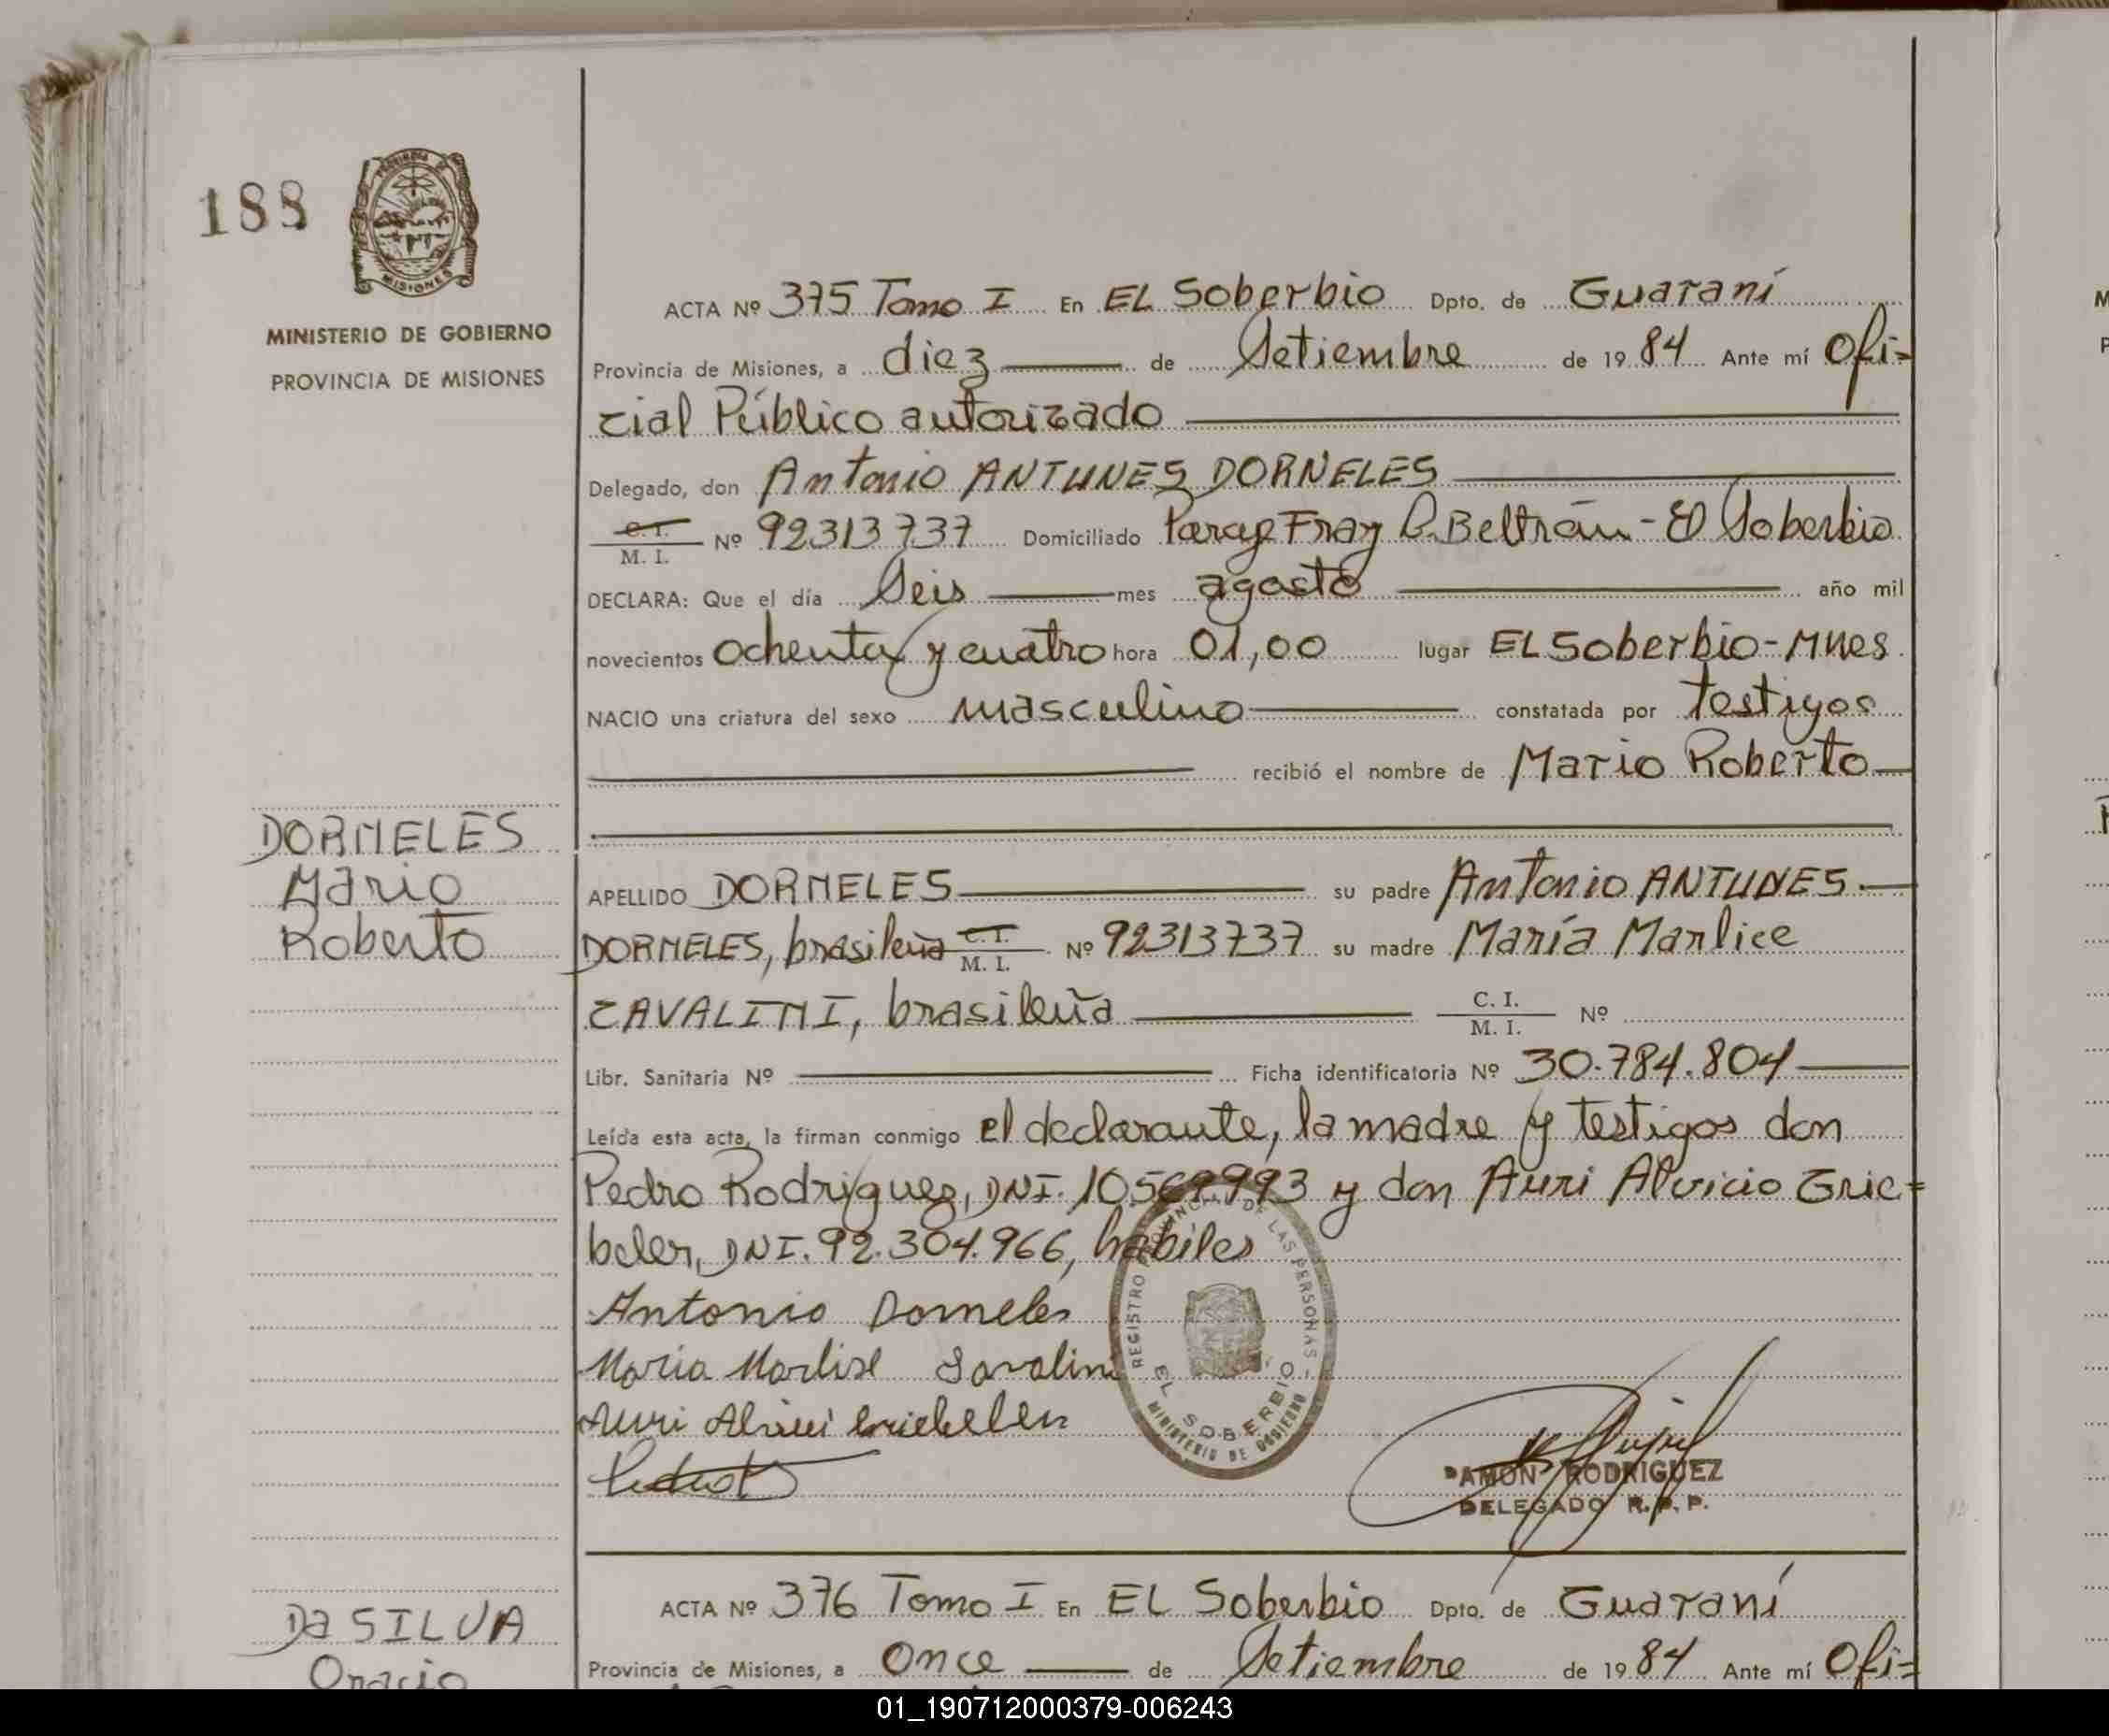 188
PROVINCIA DE
MISIONES
MINISTERIO DE GOBIERNO
PROVINCIA DE MISIONES
ACTA Nº 375 Tomo I En EL Soberbio Dpto. de Guaraní
Provincia de Misiones, a diez de Setiembre de 1984 Ante mí Ofi=
cial Público autorizado
Delegado, don Antonio ANTUNES DORNELES
C. I.
M. I. Nº 92313737 Domiciliado Paraje Fray L. Beltrán - El Soberbio
DECLARA: Que el día Seis mes agosto año mil
novecientos ochenta y cuatro hora 01,00 lugar EL Soberbio-Mnes
NACIO una criatura del sexo masculino constatada por testigos
recibió el nombre de Mario Roberto
DORNELES
Mario
Roberto
APELLIDO DORNELES su padre Antonio ANTUNES
DORNELES, brasileña C. I. M. I. Nº 92313737 su madre María Marlice
CAVALINI, brasileña C. I. M. I. Nº
Libr. Sanitaria Nº Ficha identificatoria Nº 30.784.804
Leída esta acta, la firman conmigo el declarante, la madre y testigos don
Pedro Rodriguez, DNI. 10.569993 y don Auri Alvicio Grie=
beler, DNI. 92.304.966, hábiles
Antonio Dorneles
Maria Marlise Savalini
Auri Griebeler
REGISTRO PROVINCIAL DE LAS PERSONAS
EL SOBERBIO
MINISTERIO DE GOBIERNO
RAMON RODRIGUEZ
DELEGADO R. P. P.
Da SILVA
Oracio
ACTA Nº 376 Tomo I En EL Soberbio Dpto. de Guaraní
Provincia de Misiones, a Once de Setiembre de 1984 Ante mí Ofi=
01_190712000379-006243